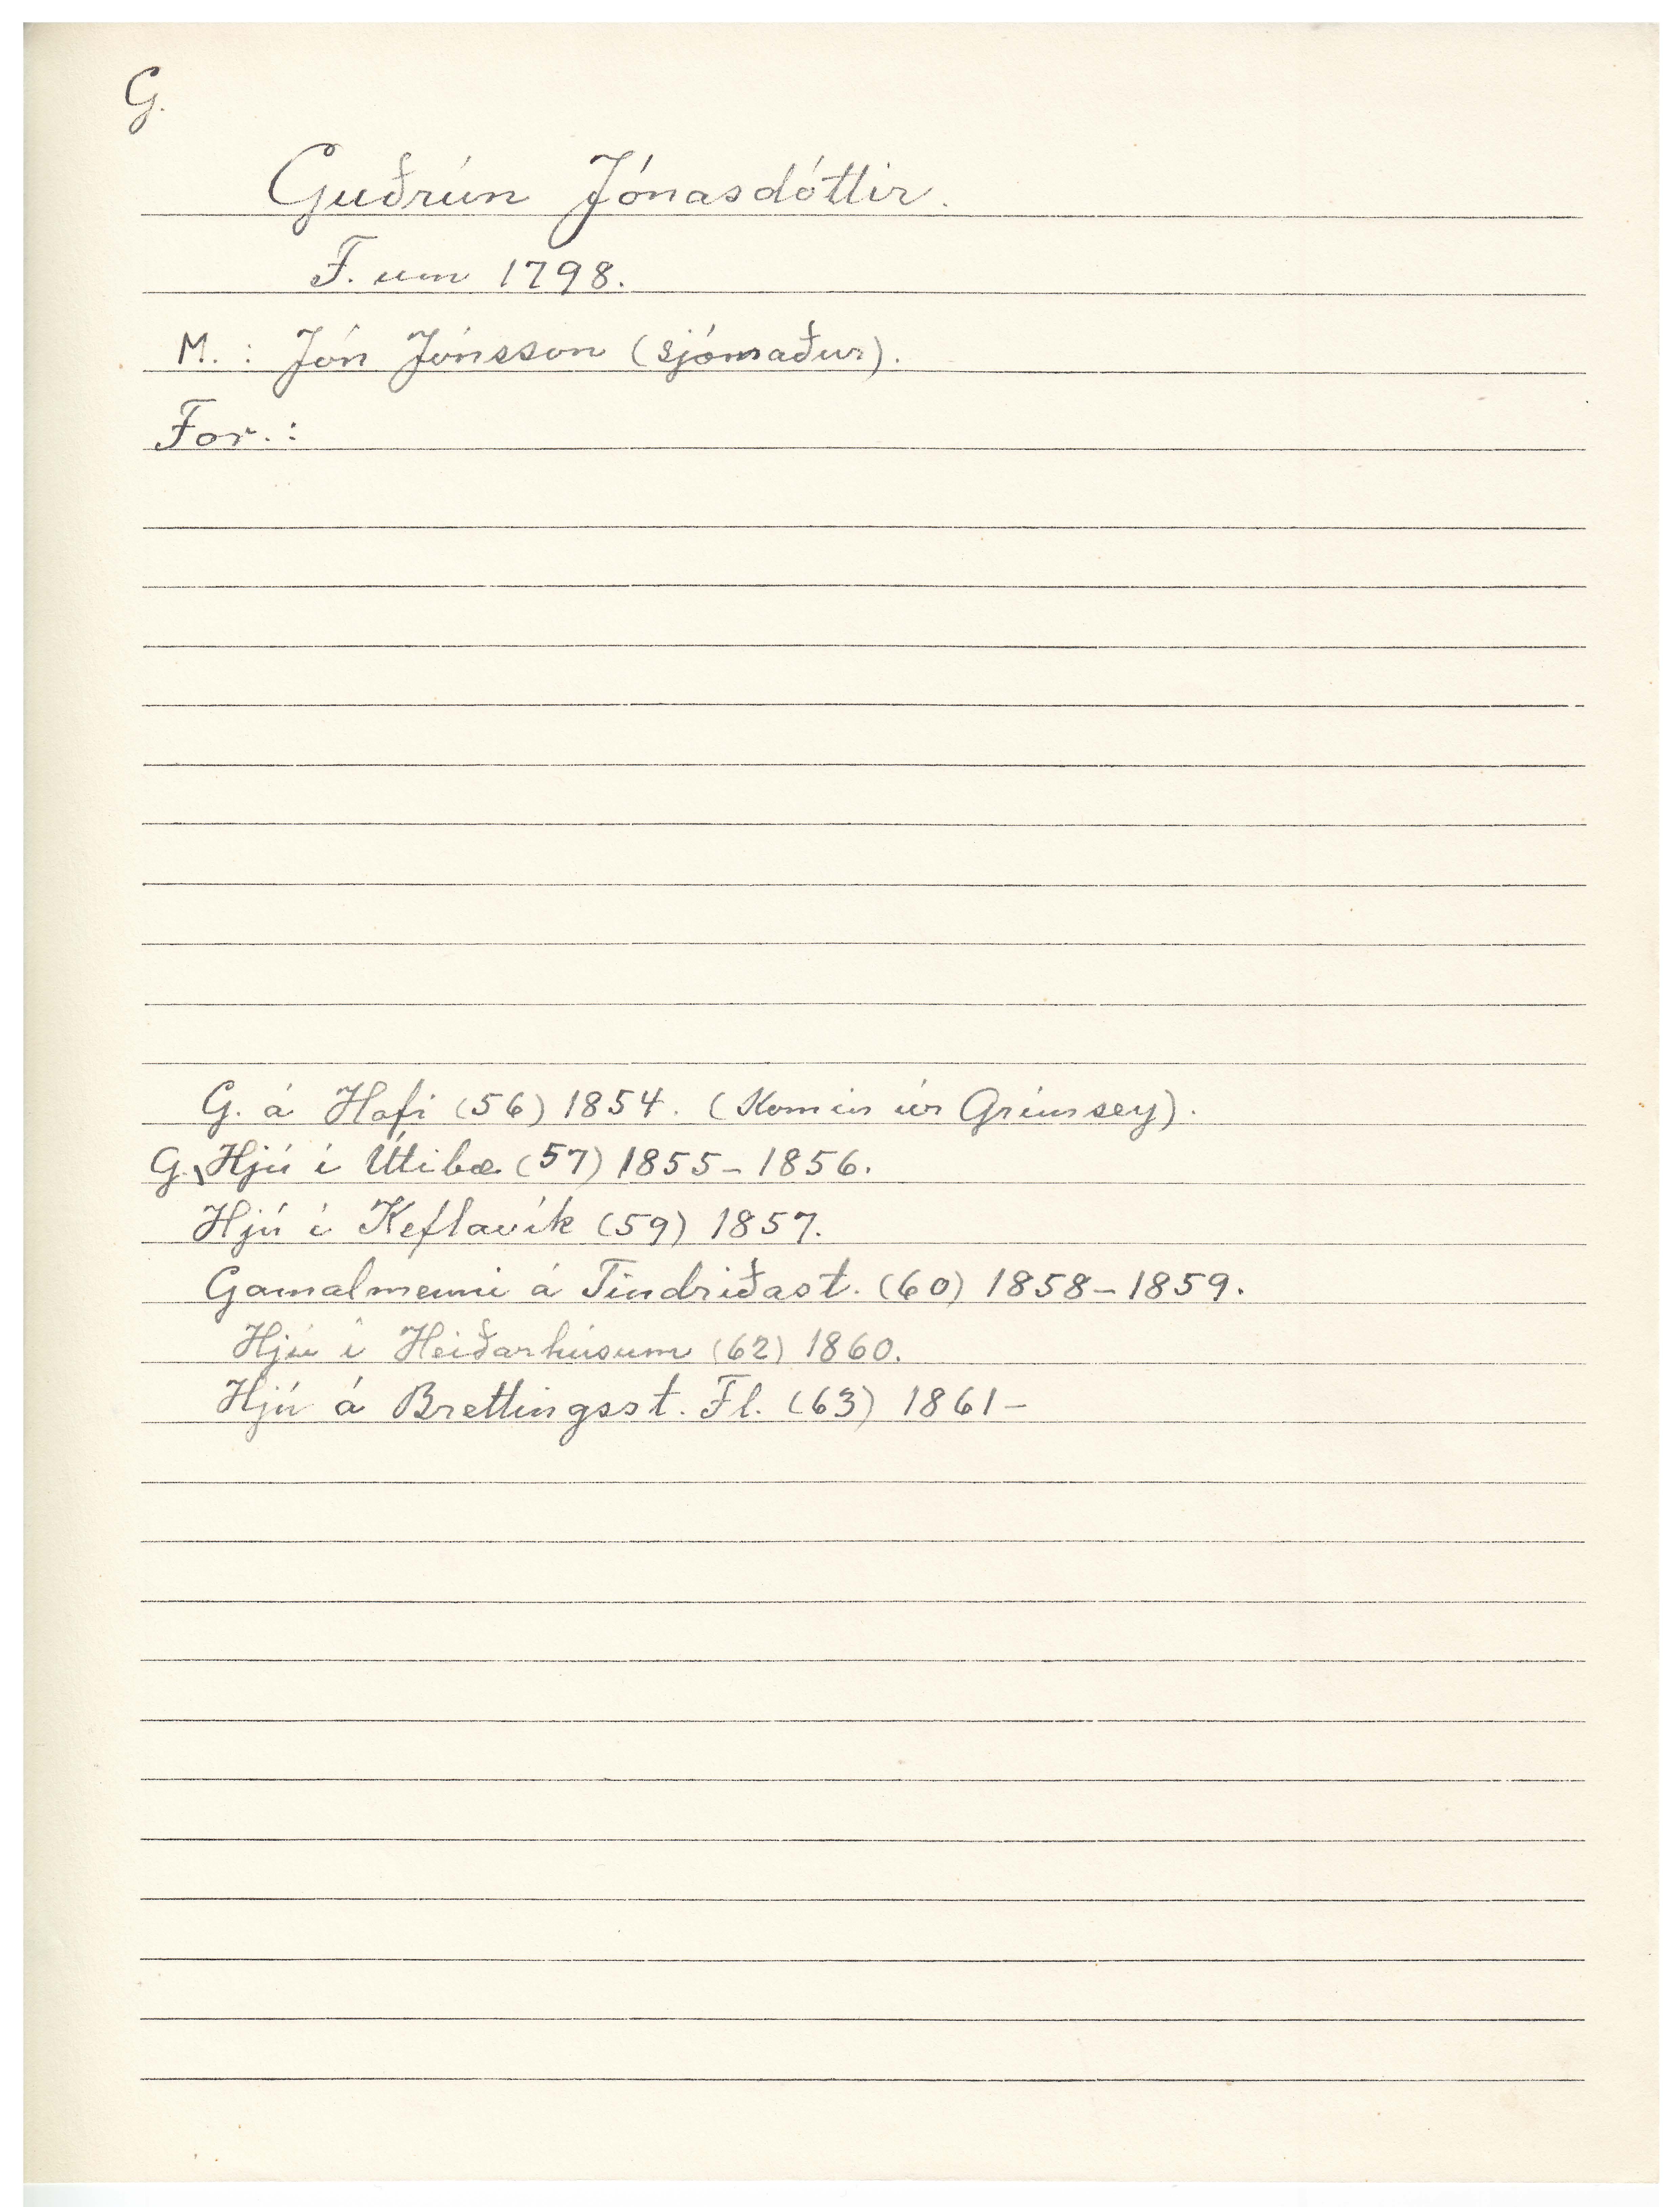 G.
Guðrún Jónasdóttir.
F. um 1798.
M. : Jón Jónsson (sjómaður).
For. :
G. á Hofi (56) 1854. (Komin úr Grímsey).
G., Hjú í Útibæ (57) 1855-1856.
Hjú í Keflavík (59) 1857.
Gamalmenni á Tindriðast. (60) 1858-1859.
Hjú í Heiðarhúsum (62) 1860.
Hjú á Brettingsst. Fl. (63) 1861-